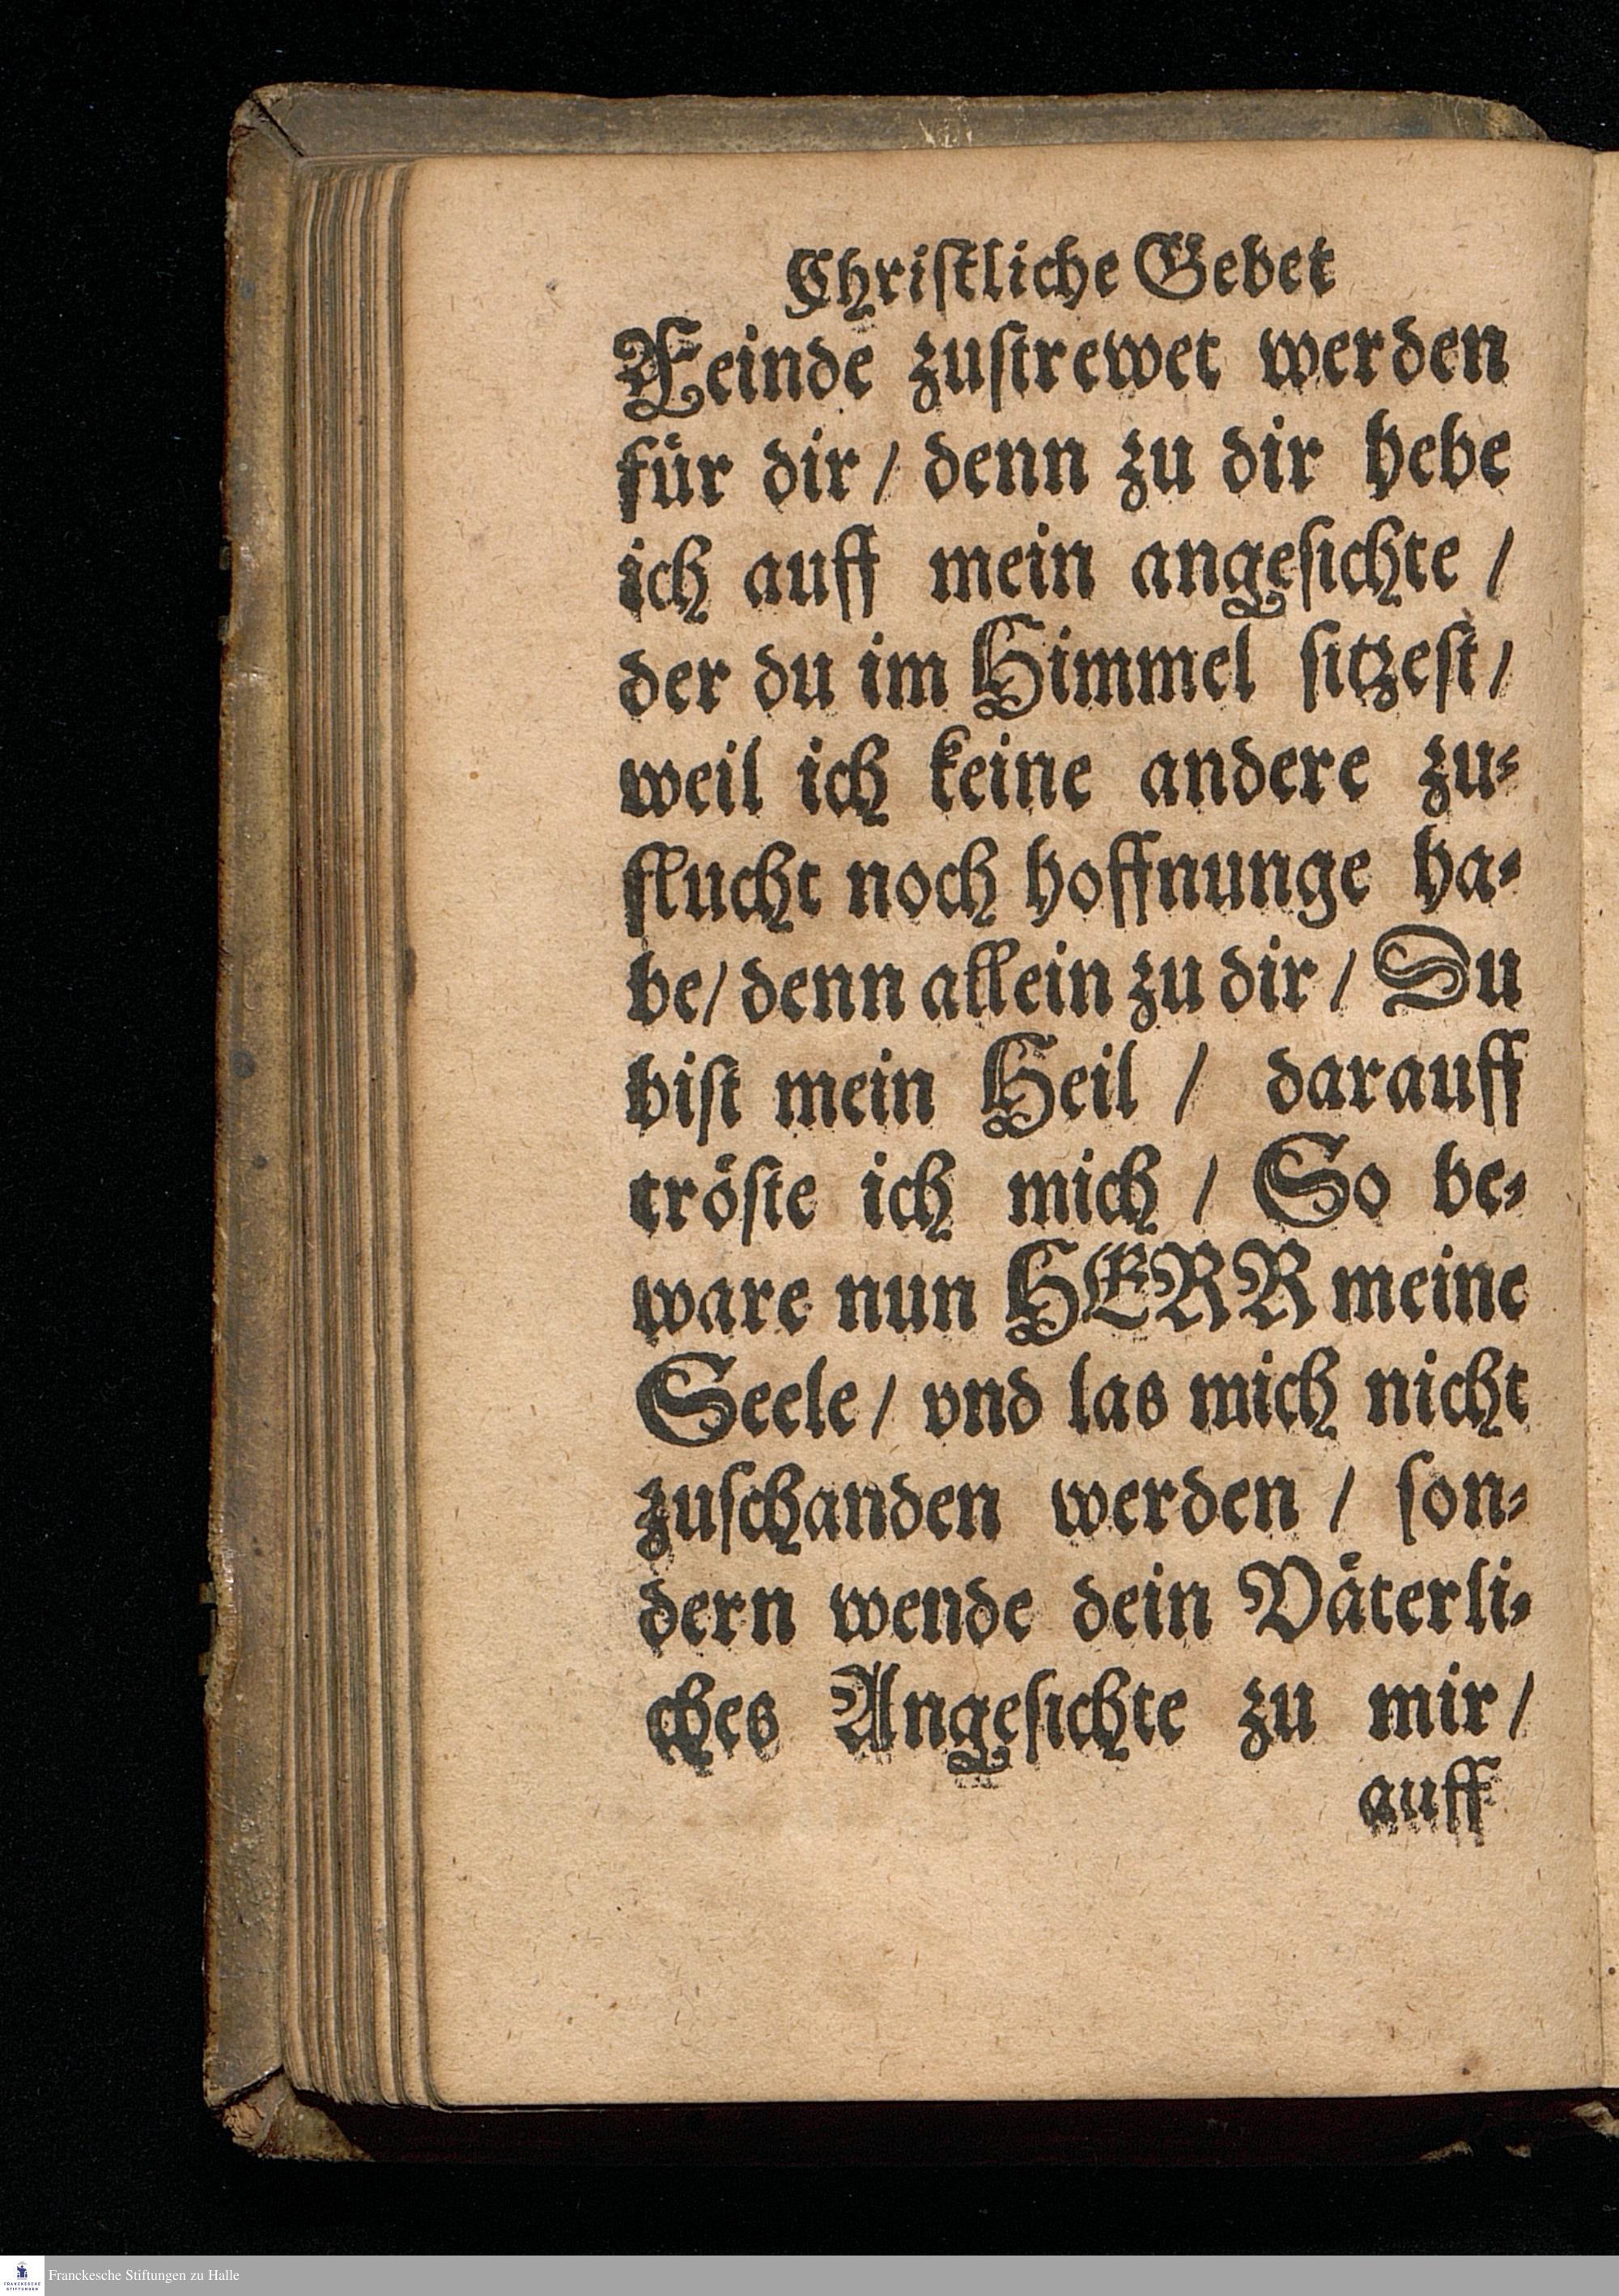 Christliche Gebet
Feinde zustrewet werden
für dir / denn zu dir hebe
ich auff mein angesichte /
der du im Himmel sitzest /
weil ich keine andere zu-
flucht noch hoffnunge ha-
be / denn allein zu dir / Du
bist mein Heil / darauff
tröste ich mich / So be-
ware nun HERR meine
Seele / vnd las mich nicht
zuschanden werden / son-
dern wende dein Väterli-
ches Angesichte zu mir /
auff
FRANCKESCHE
STIFTUNGEN
Franckesche Stiftungen zu Halle